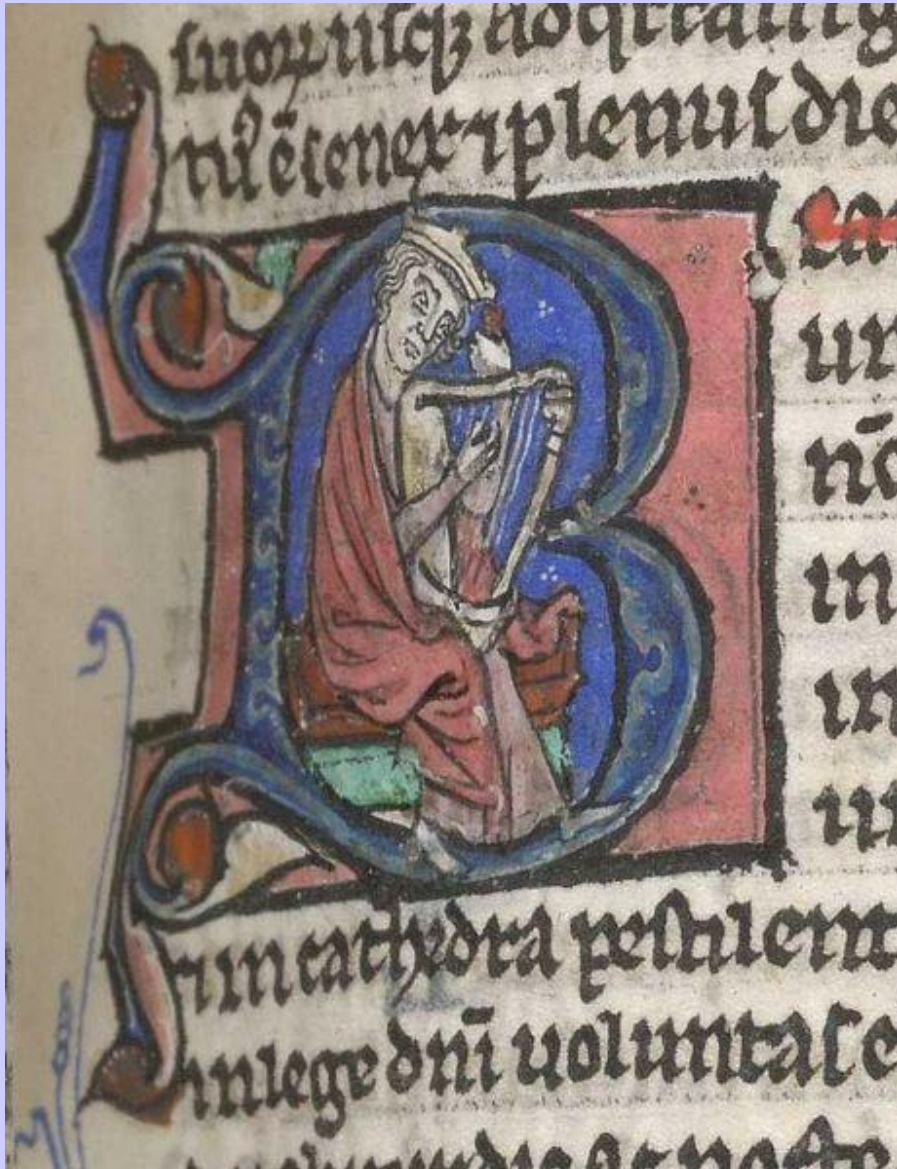 suoꝝ usqꝫ ad qrtam g
tuꝰ ē senex ⁊ plenus die
B eat
ui
nō
in
in
ui
⁊ in cathedra pestilent
in lege dn̄i uoluntas e